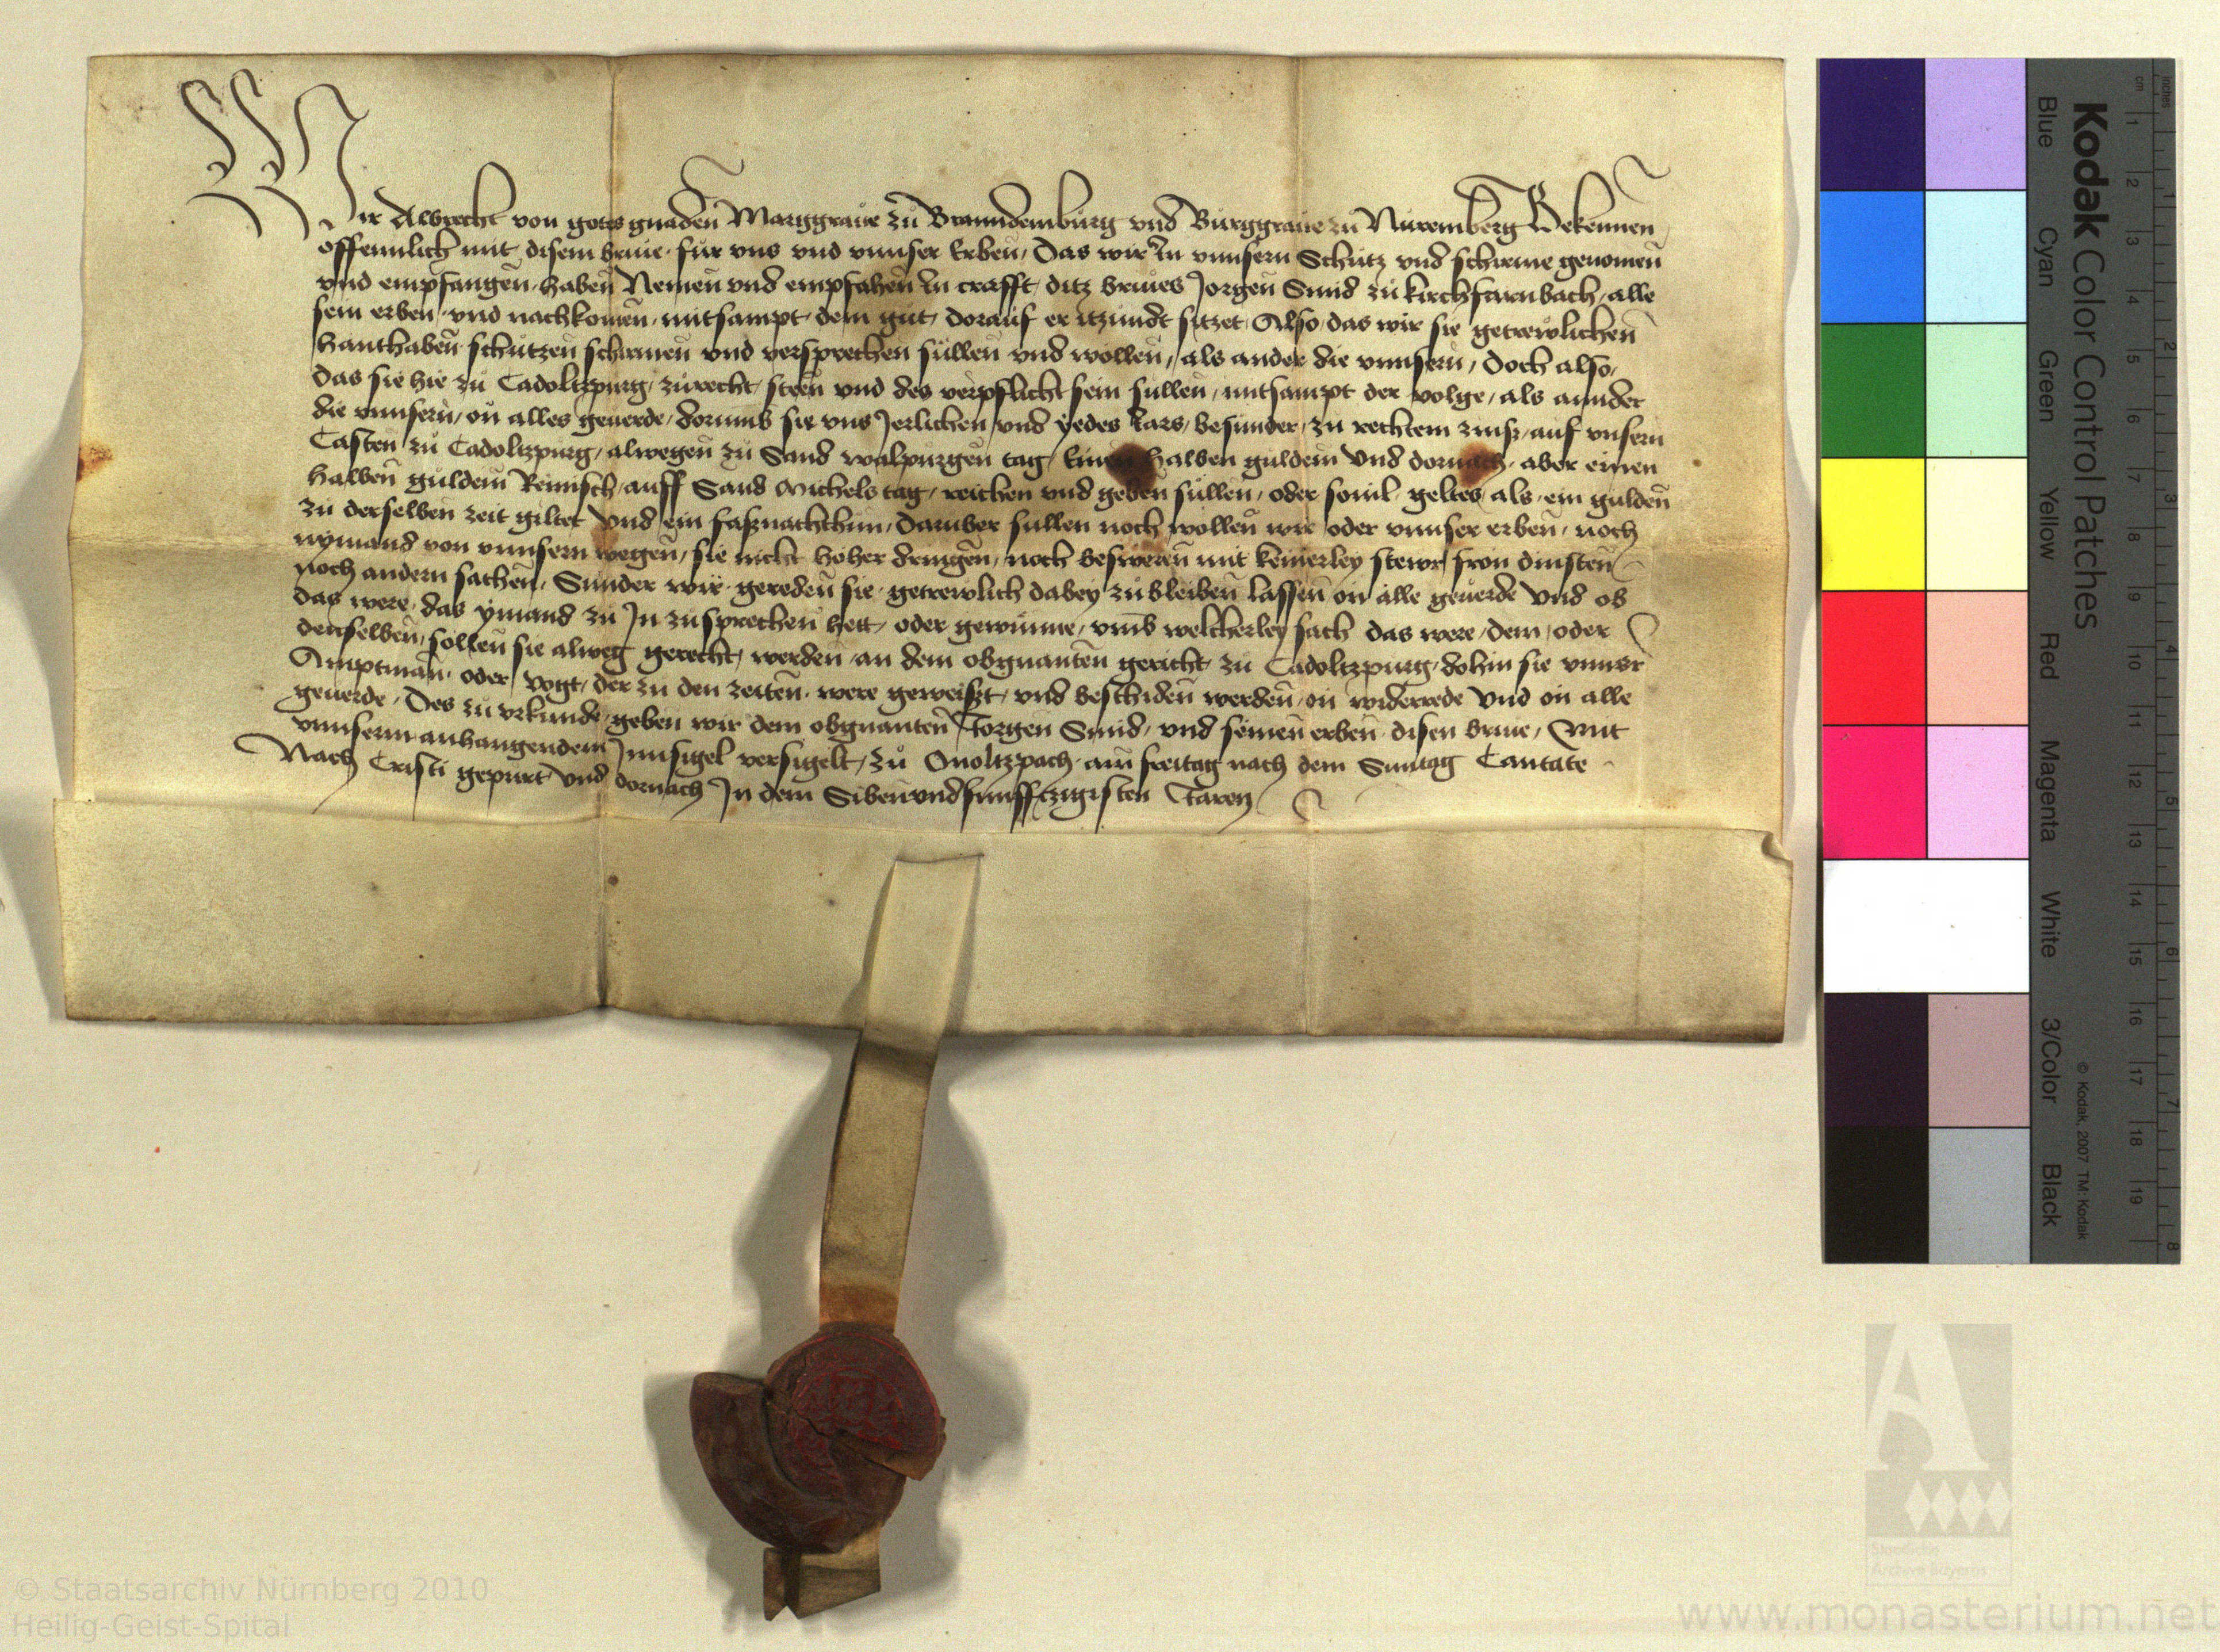 Wir Albrecht von gots gnaden Marggraue zu Branndemburg vnd Burggraue zu Nuremberg Bekennen
offennlich mit disem briue fur vns vnd vnnser Erben, Das wir In vnnsern Schutz vnd schirme genomen
vnd empfangen haben Nemen vnd empfahen In crafft ditz briues Jorgen Smid zu kirchfarnbach, alle
sein erben vnd nachkomen mitsampt dem gut dorauf er itzundt sitzet, Also das wir sie getrewlichen
hanthaben schutzen schirmen vnd versprechen sullen vnd wollen, als ander die vnnsern, Doch also,
das sie hie zu Cadoltzpurg zurecht steen vnd des verpflicht sein sullen, mitsampt der volge, als annder
die vnnsern, on alles geuerde, dorumb sie vns Jerlichen vnd yedes Jars, besunder, zu rechtem zinß, auf vnsern
Casten zu Cadoltzpurg, alwegen zu Sand walpurgen tag, Einen halben guldein vnd dornach, aber einen
halben guldein Reinisch auff Sand Michels tag, reichen vnd geben sullen, oder souil geltes, als ein gulden
zu derselben zeit giltet vnd ein faßnachthun, Daruber sullen noch wollen wir oder vnnser erben, noch
nymand von vnnsern wegen, sie nicht hoher dringen, noch besweren mit keinerley stewr fron dinsten
noch andern sachen, Sunder wir gereden sie getrewlich dabey zubleiben lassen on alle geuerde Vnd ob
das were, das ymand zu In zusprechen hett, oder gewunne, vmb welcherley sach das were, dem, oder
denselben, sollen sie alweg gerecht, werden an dem obgnanten gericht zu Cadoltzpurg, dohin sie vnnser
Amptman oder vogt, der zu den zeiten were geweißt vnd beschiden werden, on widerrede Vnd on alle
geuerde, Des zu vrkunde, geben wir dem obgnanten Jorgen Smid, vnd seinen erben disen briue, Mit
vnnserm anhangendem Innsigel versigelt, zu Onoltzpach am freitag nach dem Suntag Cantate
Nach Cristi gepurt vnd dornach In dem Sibenvndfunfftzigisten Jaren
Kodak Color Control Patches
Blue Cyan Green Yellow Red Magenta White 3/Color Black
© Kodak, 2007 TM: Kodak
inches 1 2 3 4 5 6 7 8
cm 1 2 3 4 5 6 7 8 9 10 11 12 13 14 15 16 17 18 19
© Staatsarchiv Nürnberg 2010
Heilig-Geist-Spital
Staatliche
Archive Bayerns
www.monasterium.net